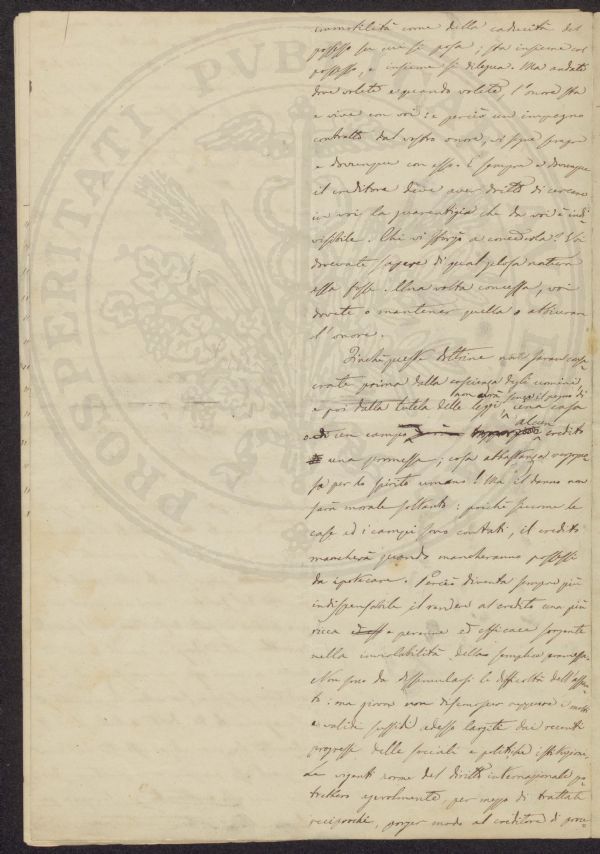 immobilità come della caducità del
possesso su cui si posa; sta insieme col
possesso, e insieme si dilegua. Ma andate
dove volete e quando volete l'onore sta
e vive con voi: e perciò un impegno
contratto dal vostro onore, vi segue sempre
e dovunque con esso. E sempre e dovunque
il creditore deve aver dritto di cercare
in voi la guarentigia che da voi è indi
visibile. Chi vi sforzò a concederla? Voi
dovevate sapere di qual gelosa natura
essa fosse. Una volta concessa, voi
dovete o mantener quella o abiurare
l'onore.
Finchè queste dottrine non saran consa
crate prima dalla coscienza degli uomini
e poi dalla tutela delle leggi, non avrà senza il pegno di una casa
o di un campo alcun credito
una promessa; cosa abbastanza
per lo spirito umano! Ma il danno non
sarà morale soltanto: poichè siccome le
case ed i campi sono contati, il credito
mancherà quando mancheranno possessi
da ipotecare. Perciò diventa sempre più
indispensabile il rendere al credito una più
ricca e perenne ed efficace sorgente
nella inviolabilità della semplice promessa.
Non sono da dissimularsi le difficoltà dell'assun
to: ma giova non disconoscer neppure i molti
e validi sussidi adesso largiti dai recenti
progressi delle sociali e politiche istituzioni.
Le vigenti norme del diritto internazionale po
trebbero agevolmente, per mezzo di trattati
reciprochi, porger modo al creditore di
PROSPERITATI PUBLICAE